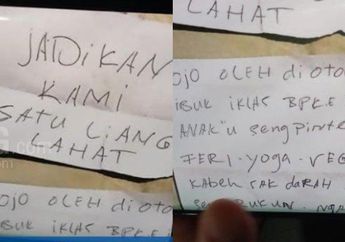 JADIKAN
KAMI
SATU LIANG
LAHAT
OJO OLEH DI OTO
IBUK IKLAS BPKE
LAHAT
OJO OLEH DI OTO
IBUK IKLAS BPKE
ANAK"U SENG PINTER
FERI. YOGA. VEG
KABEH SAK DARAH
RUKUN.